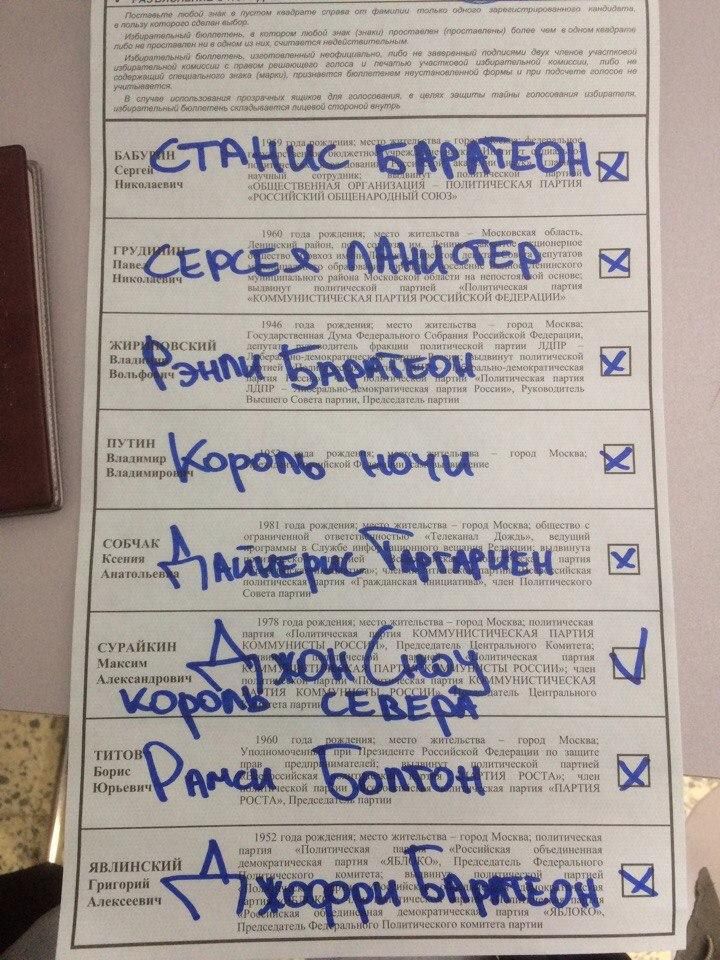 Поставьте любой знак в пустом квадрате справа от фамилии только одного зарегистрированного кандидата,
в пользу которого сделан выбор.
Избирательный бюллетень, в котором любой знак (знаки) проставлен (проставлены) более чем в одном квадрате
либо не проставлен ни в одном из них, считается недействительным.
Избирательный бюллетень, изготовленный неофициально, либо не заверенный подписями двух членов участковой
избирательной комиссии с правом решающего голоса и печатью участковой избирательной комиссии, либо не
содержащий специального знака (марки), признается бюллетенем неустановленной формы и при подсчете голосов не
учитывается.
В случае использования прозрачных ящиков для голосования, в целях защиты тайны голосования избирателя,
избирательный бюллетень складывается лицевой стороной внутрь
БАБУРИН
Сергей
Николаевич
СТАНИС БАРАТЕОН
рождения; место жительства
научный сотрудник; выдвинут политической партией
«ОБЩЕСТВЕННАЯ ОРГАНИЗАЦИЯ – ПОЛИТИЧЕСКАЯ ПАРТИЯ
«РОССИЙСКИЙ ОБЩЕНАРОДНЫЙ СОЮЗ»
ГРУДИНИН
Павел
Николаевич
1960 года рождения; место жительства – Московская область,
Ленинский район,
СЕРСЕЯ ЛАНИСТЕР
муниципального района Московской области на непостоянной основе;
выдвинут политической партией «Политическая партия
«КОММУНИСТИЧЕСКАЯ ПАРТИЯ РОССИЙСКОЙ ФЕДЕРАЦИИ»
ЖИРИНОВСКИЙ
Владимир
Вольфович
1946 года рождения; место жительства – город Москва;
Государственная Дума Федерального Собрания Российской Федерации,
депутат, руководитель фракции политической партии ЛДПР –
РЭНЛИ БАРАТЕОН
ЛДПР – Либерально-демократическая партия России», Руководитель
Высшего Совета партии, Председатель партии
ПУТИН
Владимир
Владимирович
года рождения; место жительства – город Москва;
Король ночи
СОБЧАК
Ксения
Анатольевна
1981 года рождения; место жительства – город Москва; общество с
ограниченной ответственностью «Телеканал Дождь», ведущий
программы в Службе информационного вещания Редакции; выдвинута
ДАЙНЕРИС ТАРГАРИЕН
политическая партия «Гражданская инициатива», член Политического
Совета партии
СУРАЙКИН
Максим
Александрович
1978 года рождения; место жительства – город Москва; политическая
партия «Политическая партия КОММУНИСТИЧЕСКАЯ ПАРТИЯ
КОММУНИСТЫ РОССИИ», Председатель Центрального Комитета;
ДЖОН СНОУ
КОРОЛЬ СЕВЕРА
ТИТОВ
Борис
Юрьевич
1960 года рождения; место жительства – город Москва;
Уполномоченный при Президенте Российской Федерации по защите
прав предпринимателей; выдвинут политической партией
РАМСИ БОЛТОН
РОСТА», Председатель партии
ЯВЛИНСКИЙ
Григорий
Алексеевич
1952 года рождения; место жительства – город Москва; политическая
партия «Политическая партия «Российская объединенная
демократическая партия «ЯБЛОКО», Председатель Федерального
ДЖОФРИ БАРАТЕОН
«Российская объединенная демократическая партия «ЯБЛОКО»,
Председатель Федерального Политического комитета партии